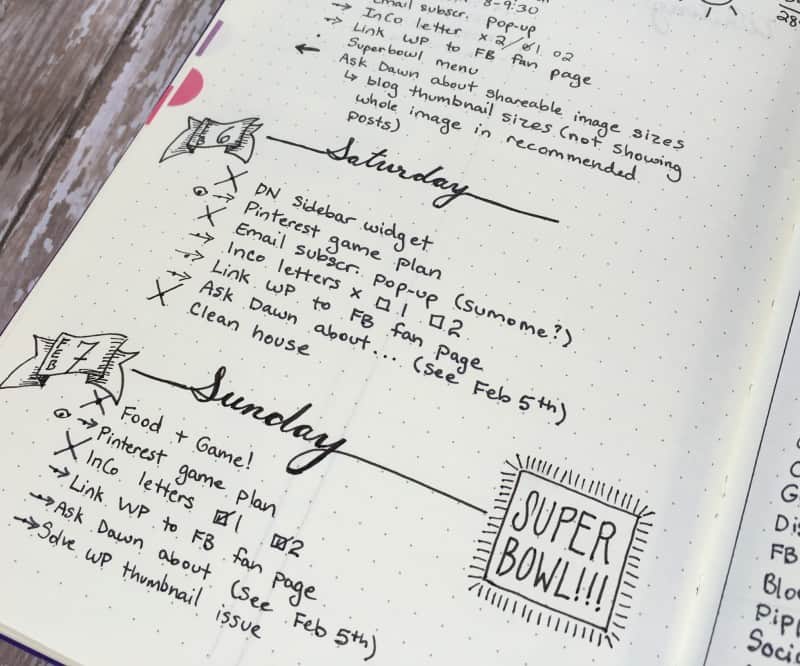 Email subscr. Pop-up
8-9:30
→ InCo letter x 2/
→ Link WP to FB fan page
Superbowl menu
← Ask Dawn about shareable image sizes
↳ blog thumbnail sizes (not showing
whole image in recommended
posts)
6
Saturday
X DN Sidebar widget
→ Pinterest game plan
X Email subscr. Pop-up (sumome?)
→ Inco letters x □ 1 □ 2
→ Link WP to FB fan page
→ Ask Dawn about... (see Feb 5th)
X Clean house
FEB 7
Sunday
X Food + Game!
→ Pinterest game plan
X InCo letters ☑ 1 ☑ 2
→ Link WP to FB fan page
→ Ask Dawn about (see Feb 5th)
→ Solve WP thumbnail issue
SUPER
BOWL!!!
28
FB
Social